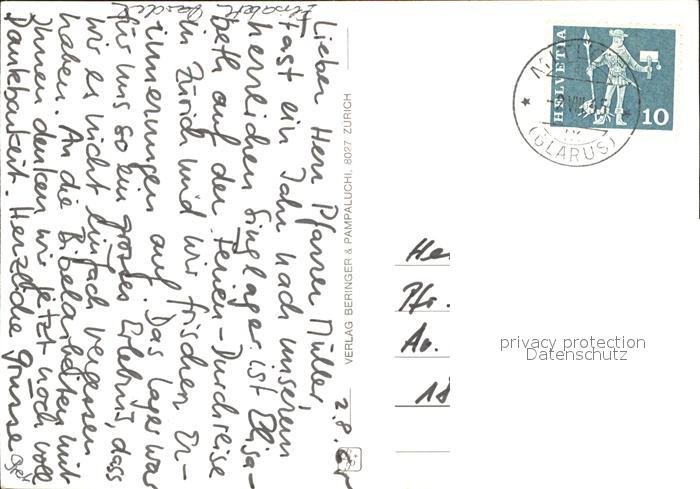 2.8.65
Lieber Herr Pfarrer Müller,
Fast ein Jahr nach unserem
herrlichen Singlager ist Elisa-
beth auf der Ferien-Durchreise
in Zürich und wir frischen Er-
innerungen auf. Das Lager war
für uns so ein grosses Erlebnis, dass
wir es nicht einfach vergessen
haben. An die Bibelarbeiten mit
Ihnen denken wir jetzt noch voll
Dankbarkeit. Herzliche Grüsse
Elisabeth
VERLAG BERINGER & PAMPALUCHI, 8027 ZÜRICH
HELVETIA
10
(GLARUS)
He
Pfr.
Av.
18
privacy protection
Datenschutz